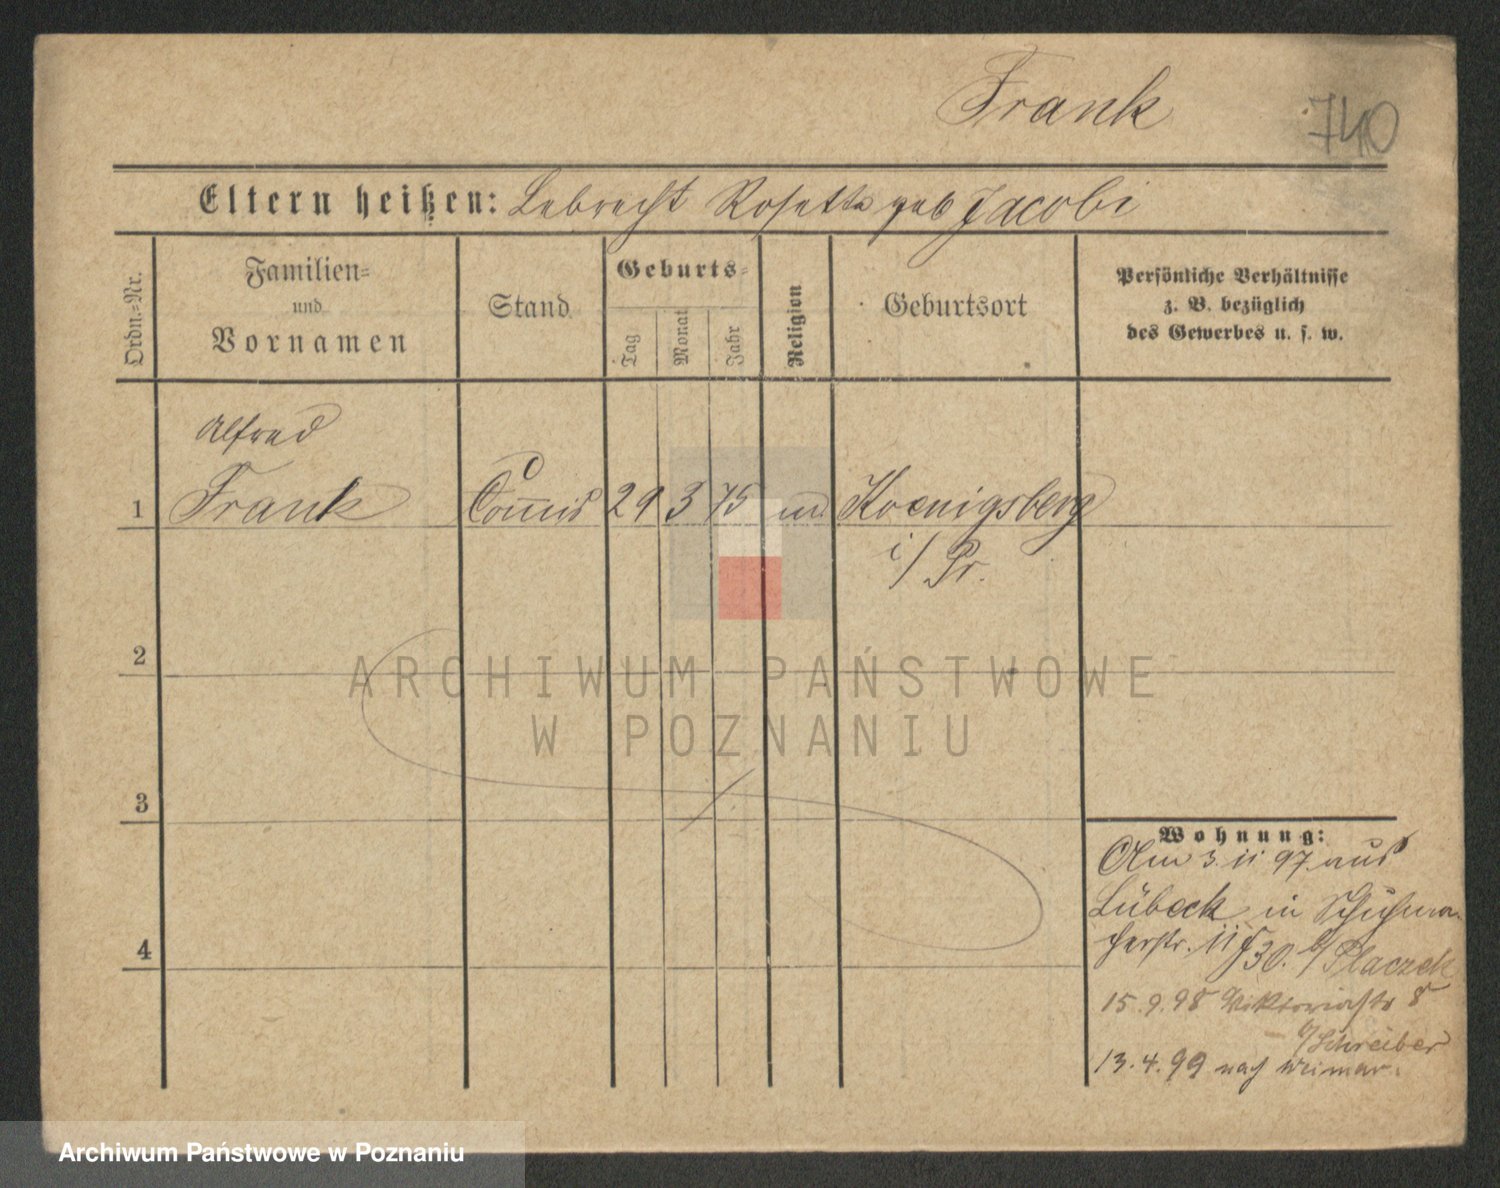 Frank
740
Eltern heißen: Lebrecht Rosette geb Jacobi
Ordn.=Nr.
Familien=
und
Vornamen
Stand
Geburts=
Tag
Monat
Jahr
Religion
Geburtsort
Persönliche Verhältnisse
z. B. bezüglich
des Gewerbes u. s. w.
Alfred
1 Frank Commis 29 3 75 Koenigsberg
i/ Pr.
2
ARCHIWUM PAŃSTWOWE
W POZNANIU
3
Wohnung:
Am 3 11 97 aus
Lübeck in Schuhma-
cherstr. 11 30. b/ Placzek
15.9.98 Viktoriastr 8
b/ Schreiber
13.4.99 nach Weimar.
4
Archiwum Państwowe w Poznaniu